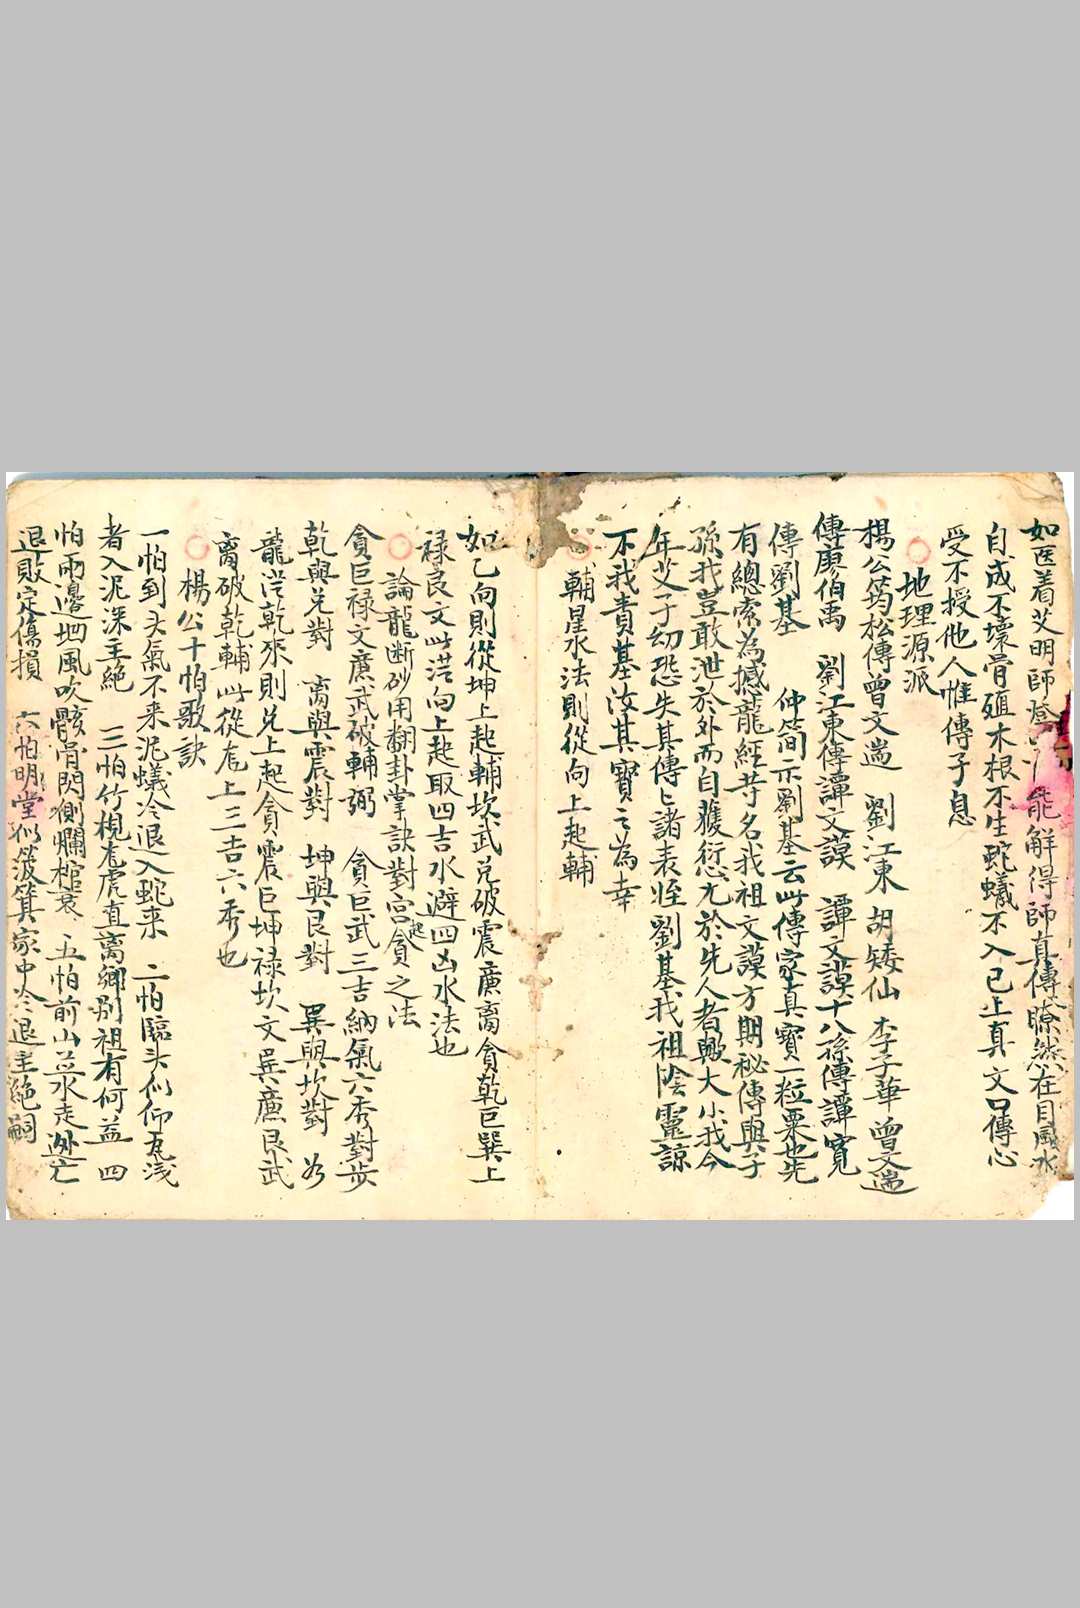 如医着艾明師燈 能解得師真傳瞭然在目風水
自成不壞骨殖木根不生蛇蟻不入已上真文口傳心
受不授他人惟傳子息
地理源派
楊公筠松傳曾文遄 劉江東 胡矮仙 李子華 曾文遄
傳庚伯禹 劉江東傳譚文謨 譚文謨十八孫傳譚寬
傳劉基 仲簡示劉基云此傳家真寶一粒粟也先
有總索為撼龍經等名我祖文謨方期秘傳與子
孫我豈敢泄於外而自獲愆尤於先人者歟大小我今
年艾子幼恐失其傳匕諸表姪劉基我祖陰靈諒
不我責基汝其寶之為幸
輔星水法則從向上起輔
如乙向則從坤上起輔坎武兌破震廉离貪乾巨巽上
禄艮文此從向上起取四吉水避四凶水法也
論龍断砂用翻卦掌訣對宮起貪之法
貪巨禄文廉武破輔弼 貪巨武三吉納氣六秀對步
乾與兌對 离與震對 坤與艮對 巽與坎對 如
龍從乾來則兌上起貪震巨坤禄坎文巽廉艮武
离破乾輔此從龙上三吉六秀也
楊公十怕歌訣
一怕到头氣不来泥蟻冷退入蛇来 二怕臨头似仰瓦浅
者入泥深主絶 三怕竹梘龙虎直离鄉别祖有何益 四
怕兩邊凹風吹骸骨閃側爛棺衰 五怕前山並水走迯亡
退敗定傷損 六怕明堂似簸箕家中冷退主絶嗣